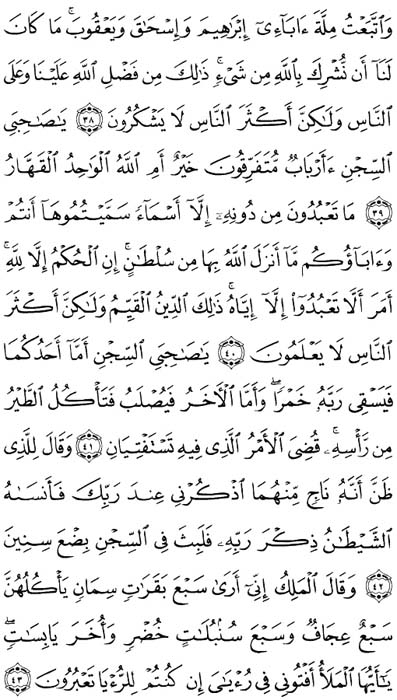 وَٱتَّبَعْتُ مِلَّةَ ءَابَآءِىٓ إِبْرَٰهِيمَ وَإِسْحَٰقَ وَيَعْقُوبَ ۚ مَا كَانَ
لَنَآ أَن نُّشْرِكَ بِٱللَّهِ مِن شَىْءٍ ۚ ذَٰلِكَ مِن فَضْلِ ٱللَّهِ عَلَيْنَا وَعَلَى
ٱلنَّاسِ وَلَٰكِنَّ أَكْثَرَ ٱلنَّاسِ لَا يَشْكُرُونَ ٣٨ يَٰصَىٰحِبَىِ
ٱلسِّجْنِ ءَأَرْبَابٌ مُّتَفَرِّقُونَ خَيْرٌ أَمِ ٱللَّهُ ٱلْوَٰحِدُ ٱلْقَهَّارُ
٣٩ مَا تَعْبُدُونَ مِن دُونِهِۦٓ إِلَّآ أَسْمَآءً سَمَّيْتُمُوهَآ أَنتُمْ
وَءَابَآؤُكُم مَّآ أَنزَلَ ٱللَّهُ بِهَا مِن سُلْطَٰنٍ ۚ إِنِ ٱلْحُكْمُ إِلَّا لِلَّهِ ۚ
أَمَرَ أَلَّا تَعْبُدُوٓا۟ إِلَّآ إِيَّاهُ ۚ ذَٰلِكَ ٱلدِّينُ ٱلْقَيِّمُ وَلَٰكِنَّ أَكْثَرَ
ٱلنَّاسِ لَا يَعْلَمُونَ ٤٠ يَٰصَىٰحِبَىِ ٱلسِّجْنِ أَمَّآ أَحَدُكُمَا
فَيَسْقِى رَبَّهُۥ خَمْرًا ۖ وَأَمَّا ٱلْءَاخَرُ فَيُصْلَبُ فَتَأْكُلُ ٱلطَّيْرُ
مِن رَّأْسِهِۦ ۚ قُضِىَ ٱلْأَمْرُ ٱلَّذِى فِيهِ تَسْتَفْتِيَانِ ٤١ وَقَالَ لِلَّذِى
ظَنَّ أَنَّهُۥ نَاجٍ مِّنْهُمَا ٱذْكُرْنِى عِندَ رَبِّكَ فَأَنسَىٰهُ
ٱلشَّيْطَٰنُ ذِكْرَ رَبِّهِۦ فَلَبِثَ فِى ٱلسِّجْنِ بِضْعَ سِنِينَ
٤٢ وَقَالَ ٱلْمَلِكُ إِنِّىٓ أَرَىٰ سَبْعَ بَقَرَٰتٍ سِمَانٍ يَأْكُلُهُنَّ
سَبْعٌ عِجَافٌ وَسَبْعَ سُنۢبُلَٰتٍ خُضْرٍ وَأُخَرَ يَابِسَٰتٍ ۖ
يَٰٓأَيُّهَا ٱلْمَلَأُ أَفْتُونِى فِى رُءْيَٰىَ إِن كُنتُمْ لِلرُّءْيَا تَعْبُرُونَ ٤٣